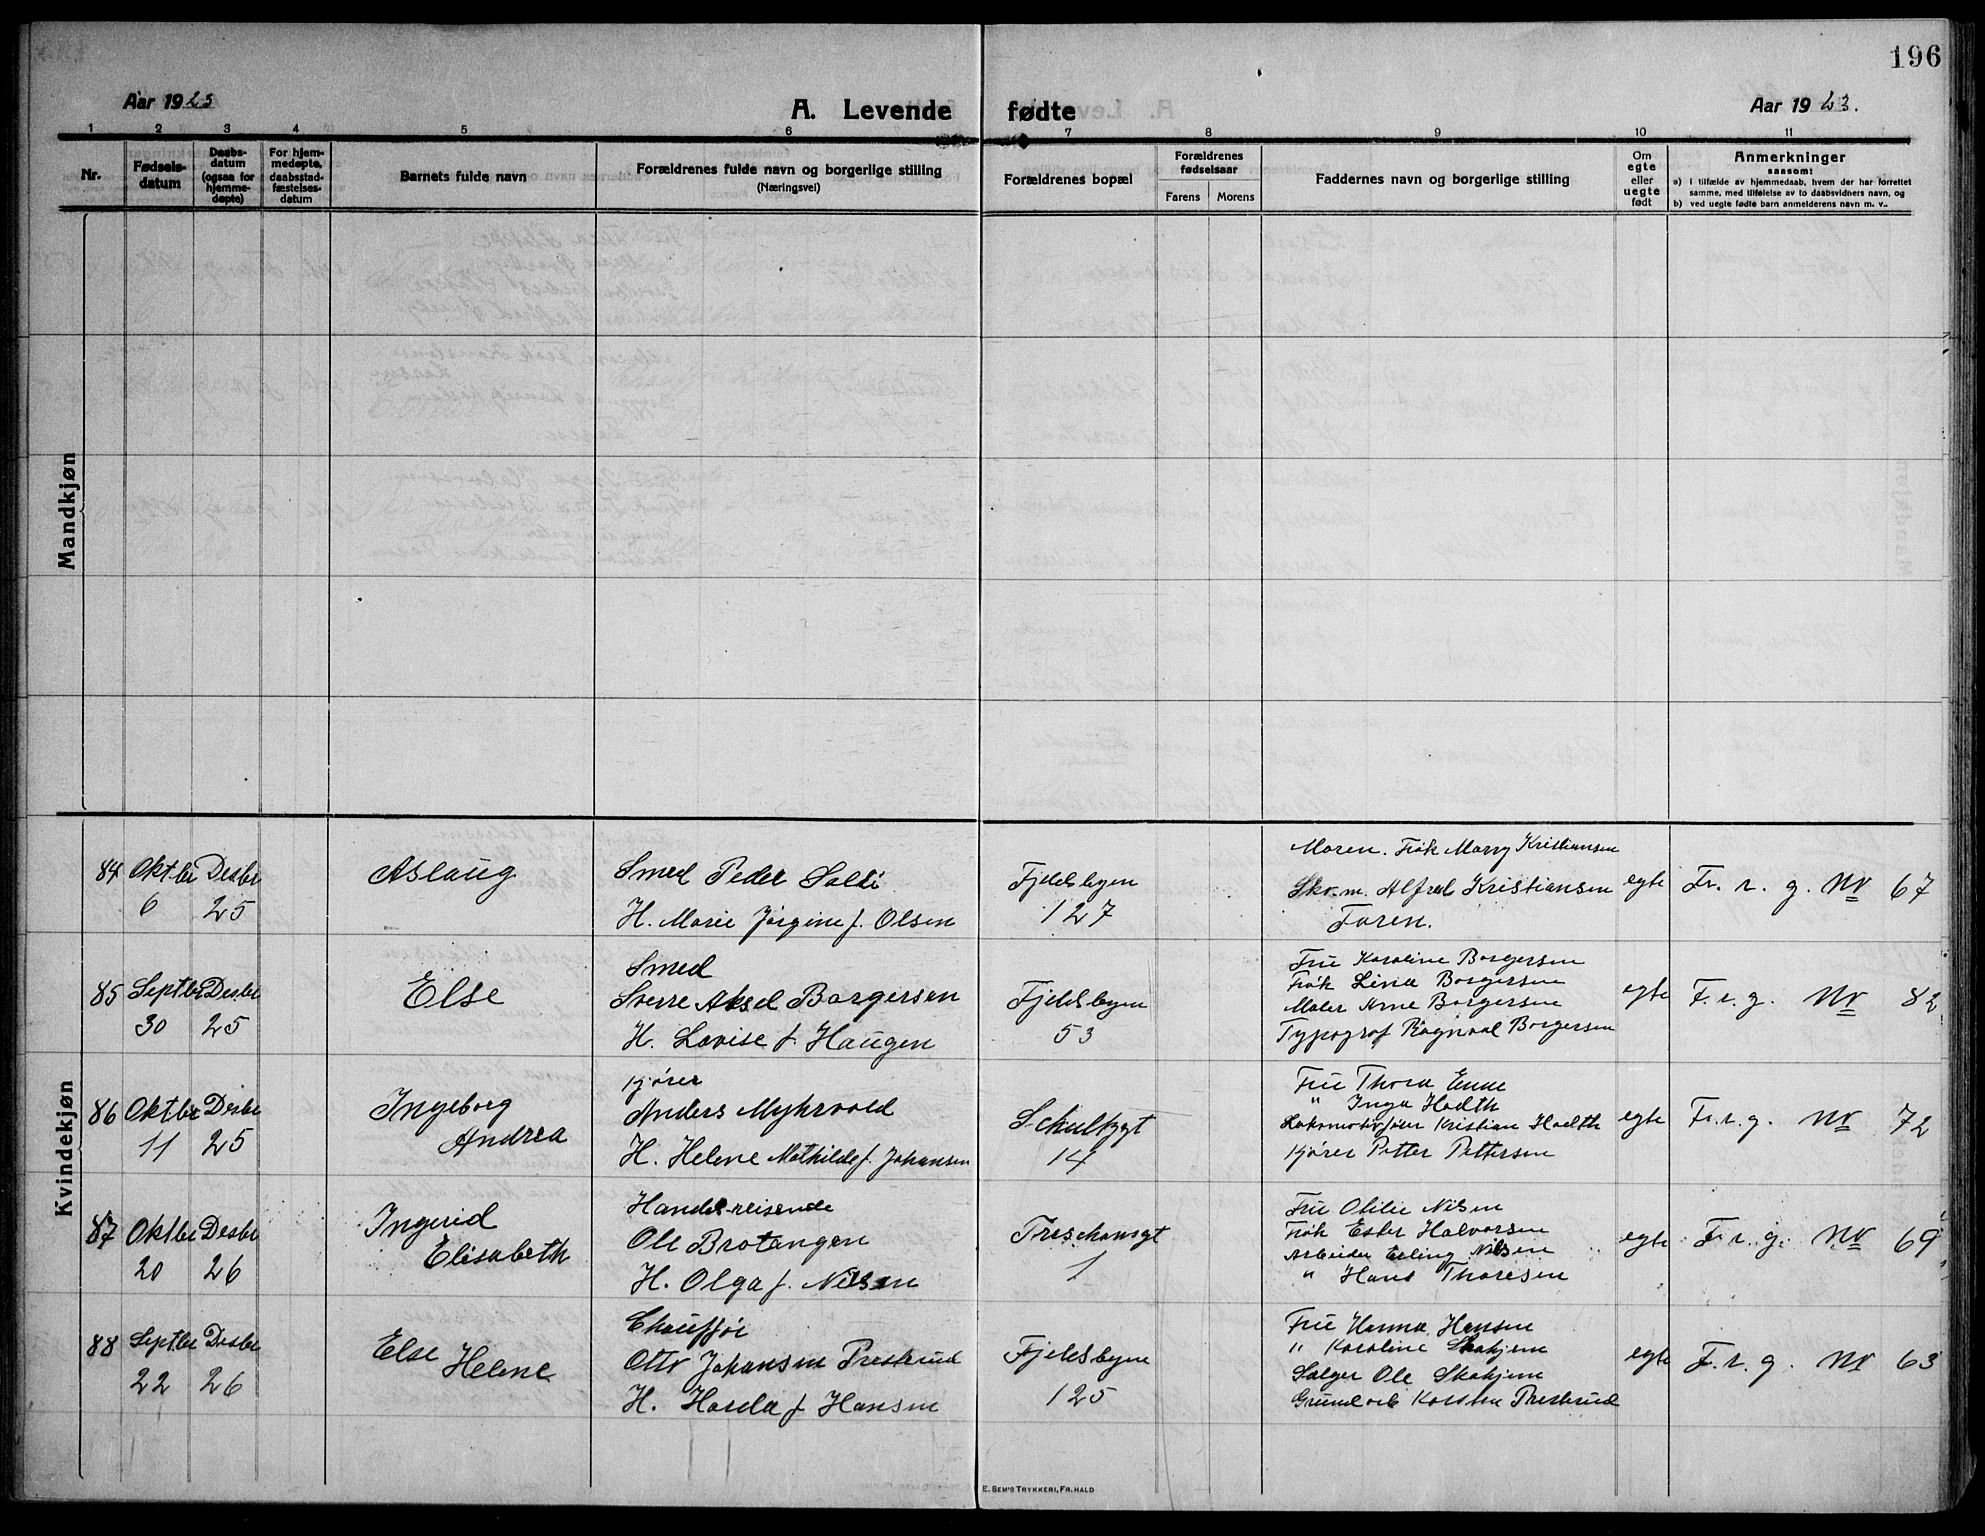 196
Aar 1923
A. Levende fødte
Aar 1923.
1 2 3 4 5 6 7 8 9 10 11
Nr.
Fødselsdatum
Daabsdatum (ogsaa for hjemmedøpte)
For hjemmedøpte, daabsstadfæstelsesdatum
Barnets fulde navn
Forældrenes fulde navn og borgerlige stilling
(Næringsvei)
Forældrenes bopæl
Forældrenes fødselsaar
Farens Morens
Faddernes navn og borgerlige stilling
Om egte eller uegte født
Anmerkninger
saasom:
a) i tilfælde av hjemmedaab, hvem der har forrettet
samme, med tilføielse av to daabsvidners navn, og
b) ved uegte fødte barn anmelderens navn m. v..
Mandkjøn
Kvindekjøn
84 Oktbr 6 Desbr 25
Aslaug
Smed Peder
H. Marie Jørgine f. Olsen
Fjeldsbyen
127
Moren. Frøk Marry Kristiansen
Skr.m. Alfred Kristiansen
Faren.
egte
Fr. r. g. Nr 67
85 Septbr 30 Desbr 25
Else
Smed
Sverre Aksel Borgersen
H. Lovise f. Haugen
Fjeldsbyen
53
Fru Karoline Borgersen
Frøk Lina Borgersen
Maler Arne Borgersen
Typograf Ragnval Borgersen
egte
F. r. g. Nr 82
86 Oktbr 11 Desbr 25
Ingeborg
Andrea
Kjører
Anders Myhrvold
H. Helene Mathilde f. Johansen
Schultzgt
14
Fru Thora Enne
" Inga Hoelth
Lokomotivfører Kristian Hoelth
Kjører Petter Pettersen
egte
F. r. g. Nr 72
87 Oktbr 20 Desbr 26
Ingerid
Elisabeth
Handelsreisende
Ole Brotangen
H. Olga f. Nilsen
Treschowsgt
1
Fru Otilie Nilsen
Frøk Ester Halvorsen
Arbeider Erling Nilsen
" Hans Thoresen
egte
F. r. g. Nr 69
88 Septbr 22 Desbr 26
Else
Helene
Chauffør
Otto Johansen Prestrud
H. Harda f Hansen
Fjeldsbyen
125
Fru Hanna Hansen
" Karoline Skahjem
Selger Ole Skahjem
Grundarb Karsten Prestrud
egte
F. r. g. Nr 63
E. SEM'S TRYKKERI, FR. HALD